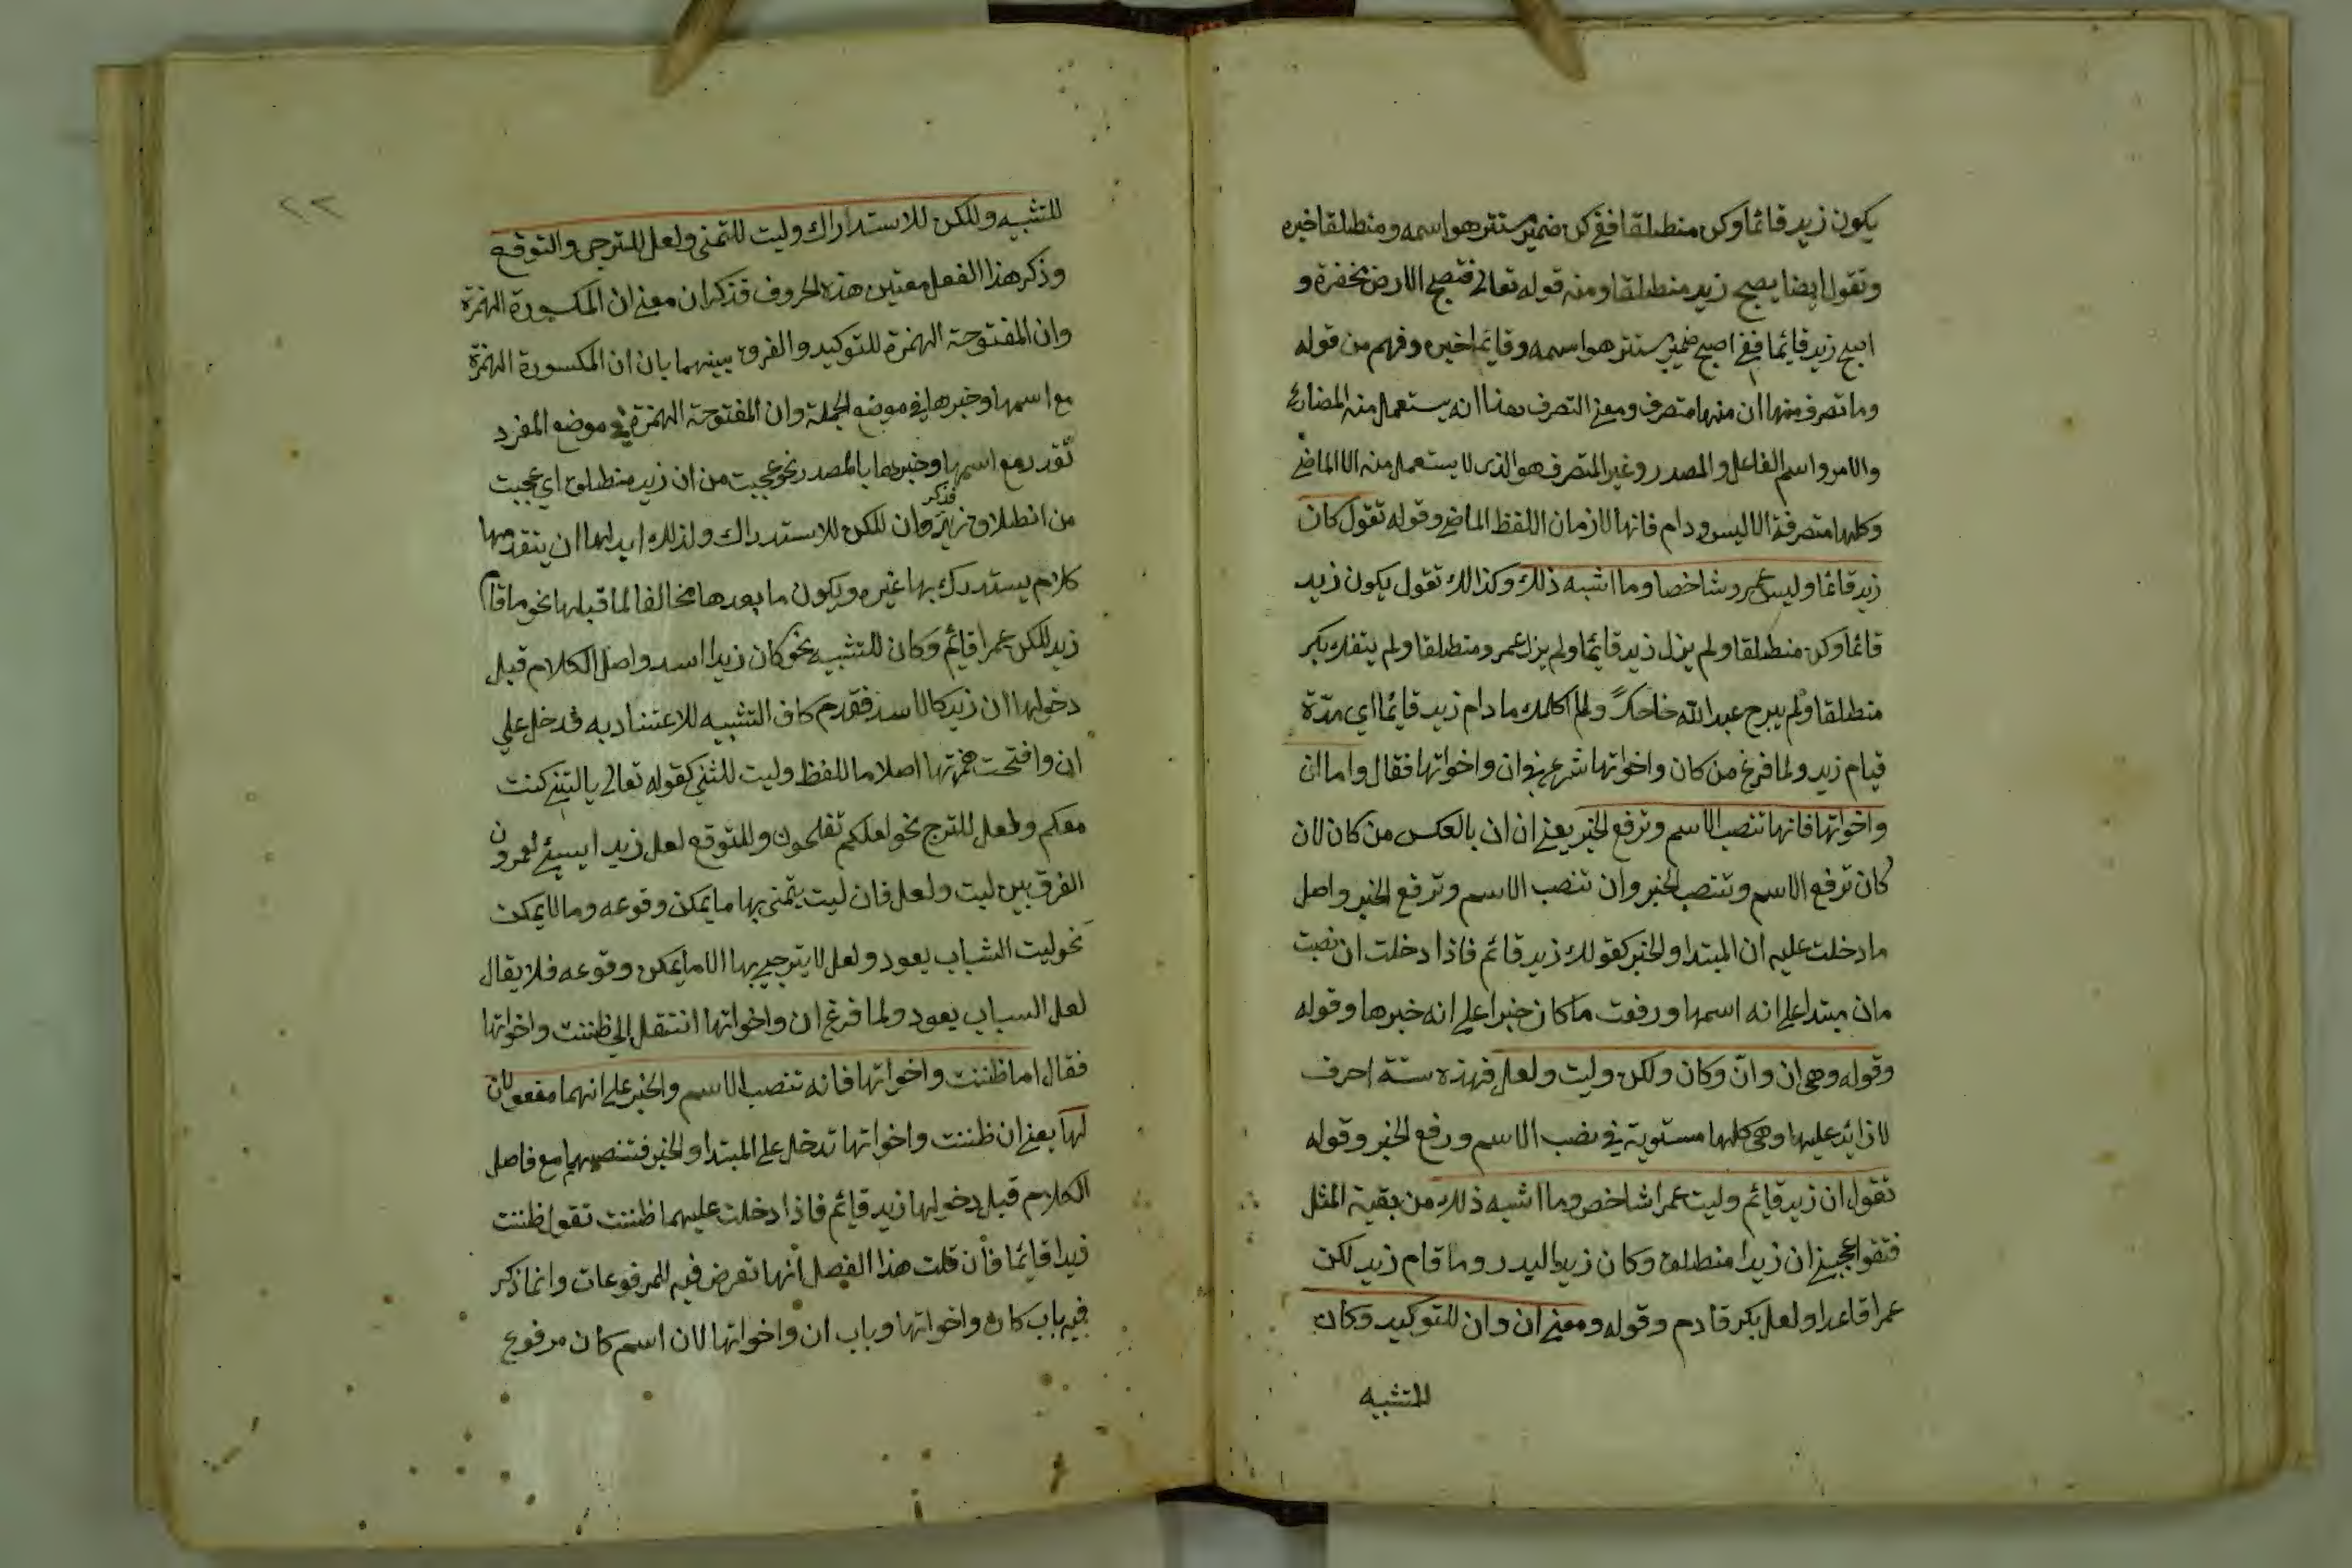 يكون زيد قائما وكن منطلقا ففى كن ضمير مستتر هو اسمه ومنطلقا خبره
وتقول ايضا يصبح زيد منطلقا ومنه قوله تعالى فتصبح الارض مخضرة و
اصبح زيد قائما ففى اصبح ضمير مستتر هو اسمه وقائما خبره وفهم من قوله
وما تصرف منها ان منها متصرف ومعنى التصرف هنا انه يستعمل منه المضارع
والامر واسم الفاعل والمصدر وغير المتصرف هو الذى لا يستعمل منه الا الماضى
وكلها متصرفة الا ليس ودام فانها لازمان اللفظ الماضى وقوله تقول كان
زيد قائما وليس عمرو شاخصا وما اشبه ذلك وكذالك تقول يكون زيد
قائما وكن منطلقا ولم يزل زيد قائما ولم يزل عمرو منطلقا ولم ينفك بكر
منطلقا ولم يبرح عبد الله ضاحكا ولم اكلمك ما دام زيد قائما اى مدة
قيام زيد ولما فرغ من كان واخواتها شرع فى ان واخواتها فقال واما ان
واخواتها فانها تنصب الاسم وترفع الخبر يعنى ان ان بالعكس من كان لان
كان ترفع الاسم وتنصب الخبر وان تنصب الاسم وترفع الخبر واصل
ما دخلت عليه ان المبتدا والخبر كقولك زيد قائم فاذا دخلت ان نصبت
مان مبتدا على انه اسمها ورفعت ما كان خبرا على انه خبرها وقوله
وقوله وهى ان وانّ وكان ولكن وليت ولعل فهذه ستة احرف
لا زايد عليها وهى كلها مستوية فى نصب الاسم ورفع الخبر وقوله
تقول ان زيد قايم وليت عمرا شاخص وما اشبه ذلك من بقية المثل
فتقوا عجبنى ان زيدا منطلق وكان زيدا البدر وما قام زيد لكن
عمرا قاعدا ولعل بكر قادم وقوله ومعنى ان وان للتوكيد وكان
للتشبيه
٢٢
للتشبيه وللكن للاستدراك وليت للتمنى ولعل للترجى والتوقع
وذكر هذا الفعل معنيين هذه الحروف فذكر ان معنى ان المكسورة الهمزة
وان المفتوحة الهمزة للتوكيد والفرق بينهما بان ان المكسورة الهمزة
مع اسمها وخبرها فى موضع الجملة وان المفتوحة الهمزة فى موضع المفرد
تقدر مع اسمها وخبرهما بالمصدر نحو عجبت من ان زيد منطلق اى عجبت
من انطلاق زيد فذكر وان للكن للاستدراك ولذلك ابدلها ان يتقدمها
كلام يستدرك بها غيره ويكون ما بعدها مخالفا لما قبلها نحو ما قام
زيد للكن عمرا قائم وكان للتشبيه نحو كان زيدا اسد واصل الكلام قبل
دخولها ان زيد كالاسد فقدم كاف التشبيه للاعتناد به فدخل على
ان وافتحت همزتها اصلاما للفظ وليت للثنى كقوله تعالى ياليتنى كنت
معكم ولعل للترج نحو لعلكم تفلحون وللتوقع لعل زيدا ايسئ لعمرو ن
الفرق بين ليت ولعل فان ليت يتمنى بها ما يمكن وقوعه وما لا يمكن
نحو ليت الشباب يعود ولعل لا يترجى بها الا ما يمكن وقوعه فلا يقال
لعل السباب يعود ولما فرغ ان واخواتها انتقل الى ظننت واخواتها
فقال اما ظننت واخواتها فانه تنصب الاسم والخبر على انهما مفعولان
لها يعنى ان ظننت واخواتها تدخل على المبتدا والخبر فتنصبهما مع فاصل
الكلام قبل دخولها زيد قايم فاذا دخلت عليهما ظننت تقول ظننت
زيدا قايما فأن قلت هذا الفصل أنها تعرض فيه للمرفوعات وانما ذكر
فيه باب كان واخواتها وباب ان واخواتها لان اسم كان مرفوع